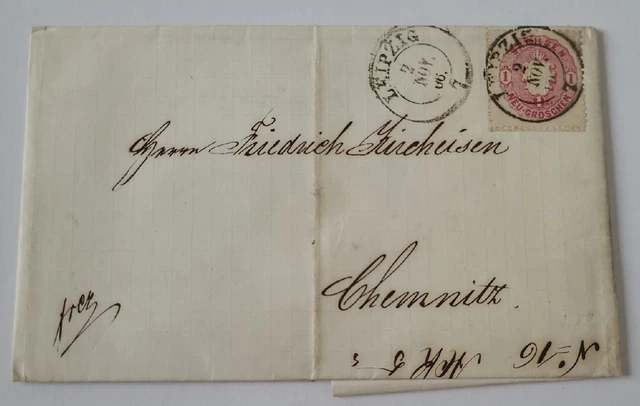 LEIPZIG
2
NOV.
66.
LEIPZIG
2
NOV.
SACHSEN
1 1
NEU-GROSCHEN
Herrn Friedrich Kircheisen
Chemnitz.
frei
No 16